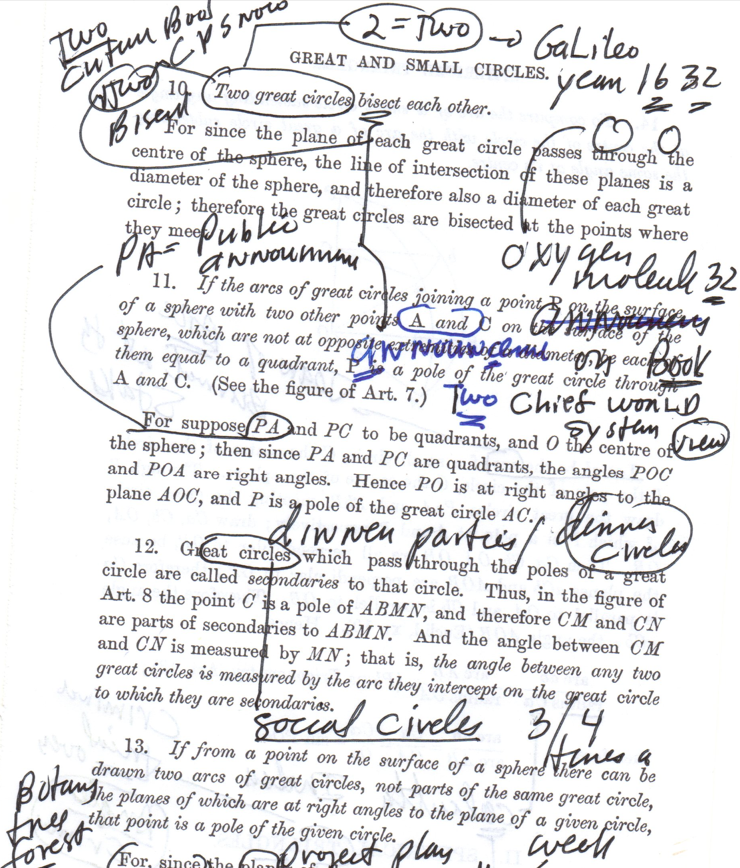 Two
2 = Two → GaLileo
Book
CPSNow
GREAT AND SMALL CIRCLES.
year 1632
Two
10. Two great circles bisect each other.
For since the plane of each great circle passes through the
centre of the sphere, the line of intersection of these planes is a
diameter of the sphere, and therefore also a diameter of each great
circle; therefore the great circles are bisected at the points where
they meet.
O O
oxygen
molecule 32
PA = Public
11. If the arcs of great circles joining a point P on the surface
of a sphere with two other points A and C on the surface of the
sphere, which are not at opposite extremities of a diameter, be each of
them equal to a quadrant, P is a pole of the great circle through
A and C. (See the figure of Art. 7.)
on Book
Two Chief world
system
view
For suppose PA and PC to be quadrants, and O the centre of
the sphere; then since PA and PC are quadrants, the angles POC
and POA are right angles. Hence PO is at right angles to the
plane AOC, and P is a pole of the great circle AC.
dinner parties / dinner
circles
12. Great circles which pass through the poles of a great
circle are called secondaries to that circle. Thus, in the figure of
Art. 8 the point C is a pole of ABMN, and therefore CM and CN
are parts of secondaries to ABMN. And the angle between CM
and CN is measured by MN; that is, the angle between any two
great circles is measured by the arc they intercept on the great circle
to which they are secondaries.
social circles 3/4
times a
week
13. If from a point on the surface of a sphere there can be
drawn two arcs of great circles, not parts of the same great circle,
the planes of which are at right angles to the plane of a given circle,
that point is a pole of the given circle.
Botany
tree
forest
project play
For, since the